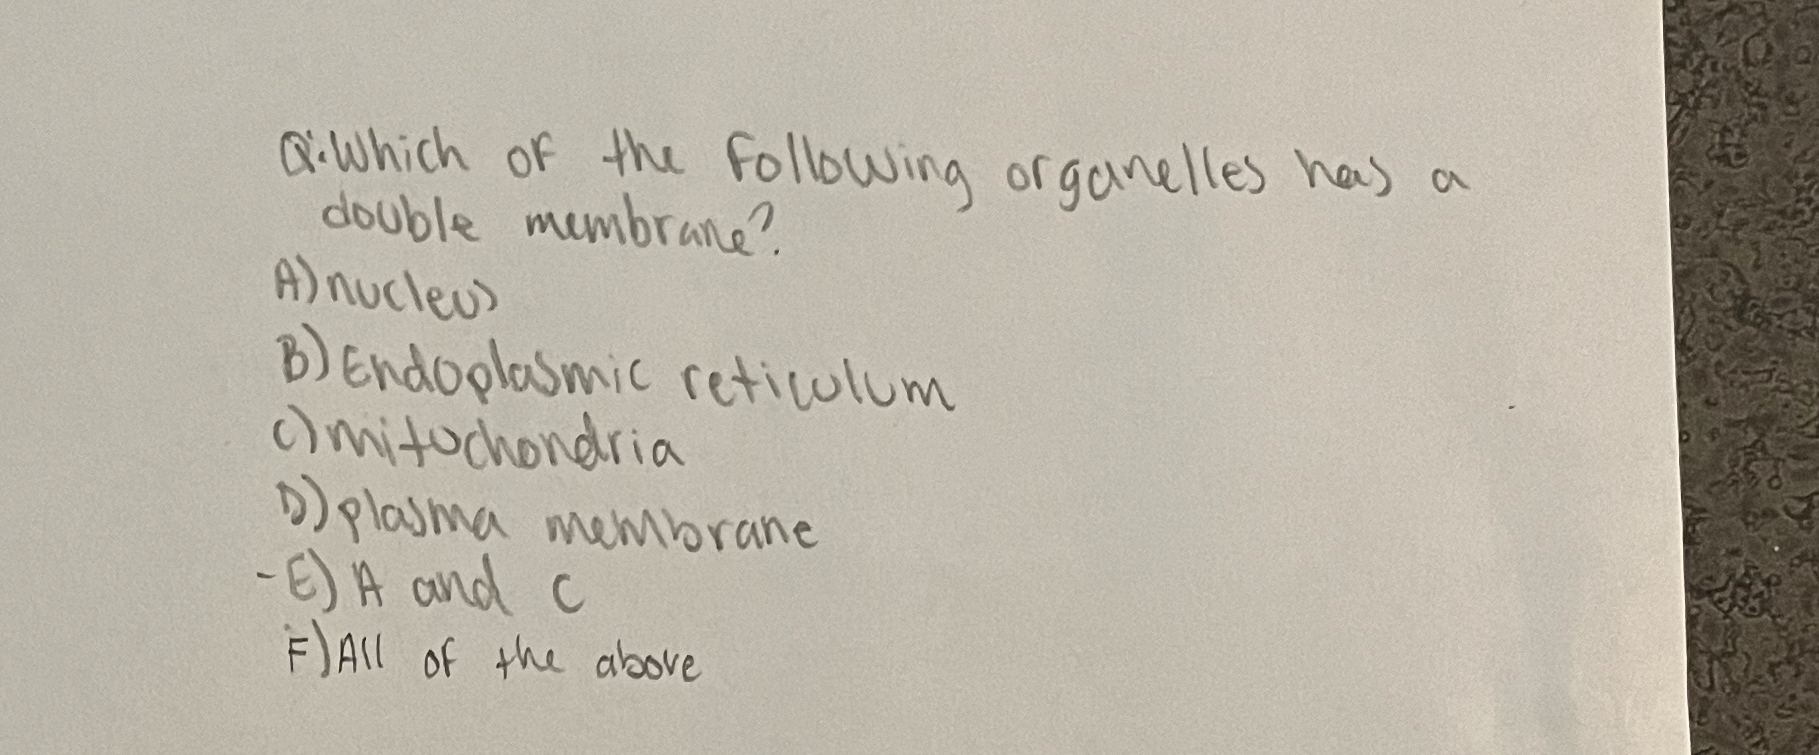 Q: Which of the following organelles has a
double membrane?
A) nucleus
B) Endoplasmic reticulum
C) mitochondria
D) plasma membrane
- E) A and C
F) All of the above